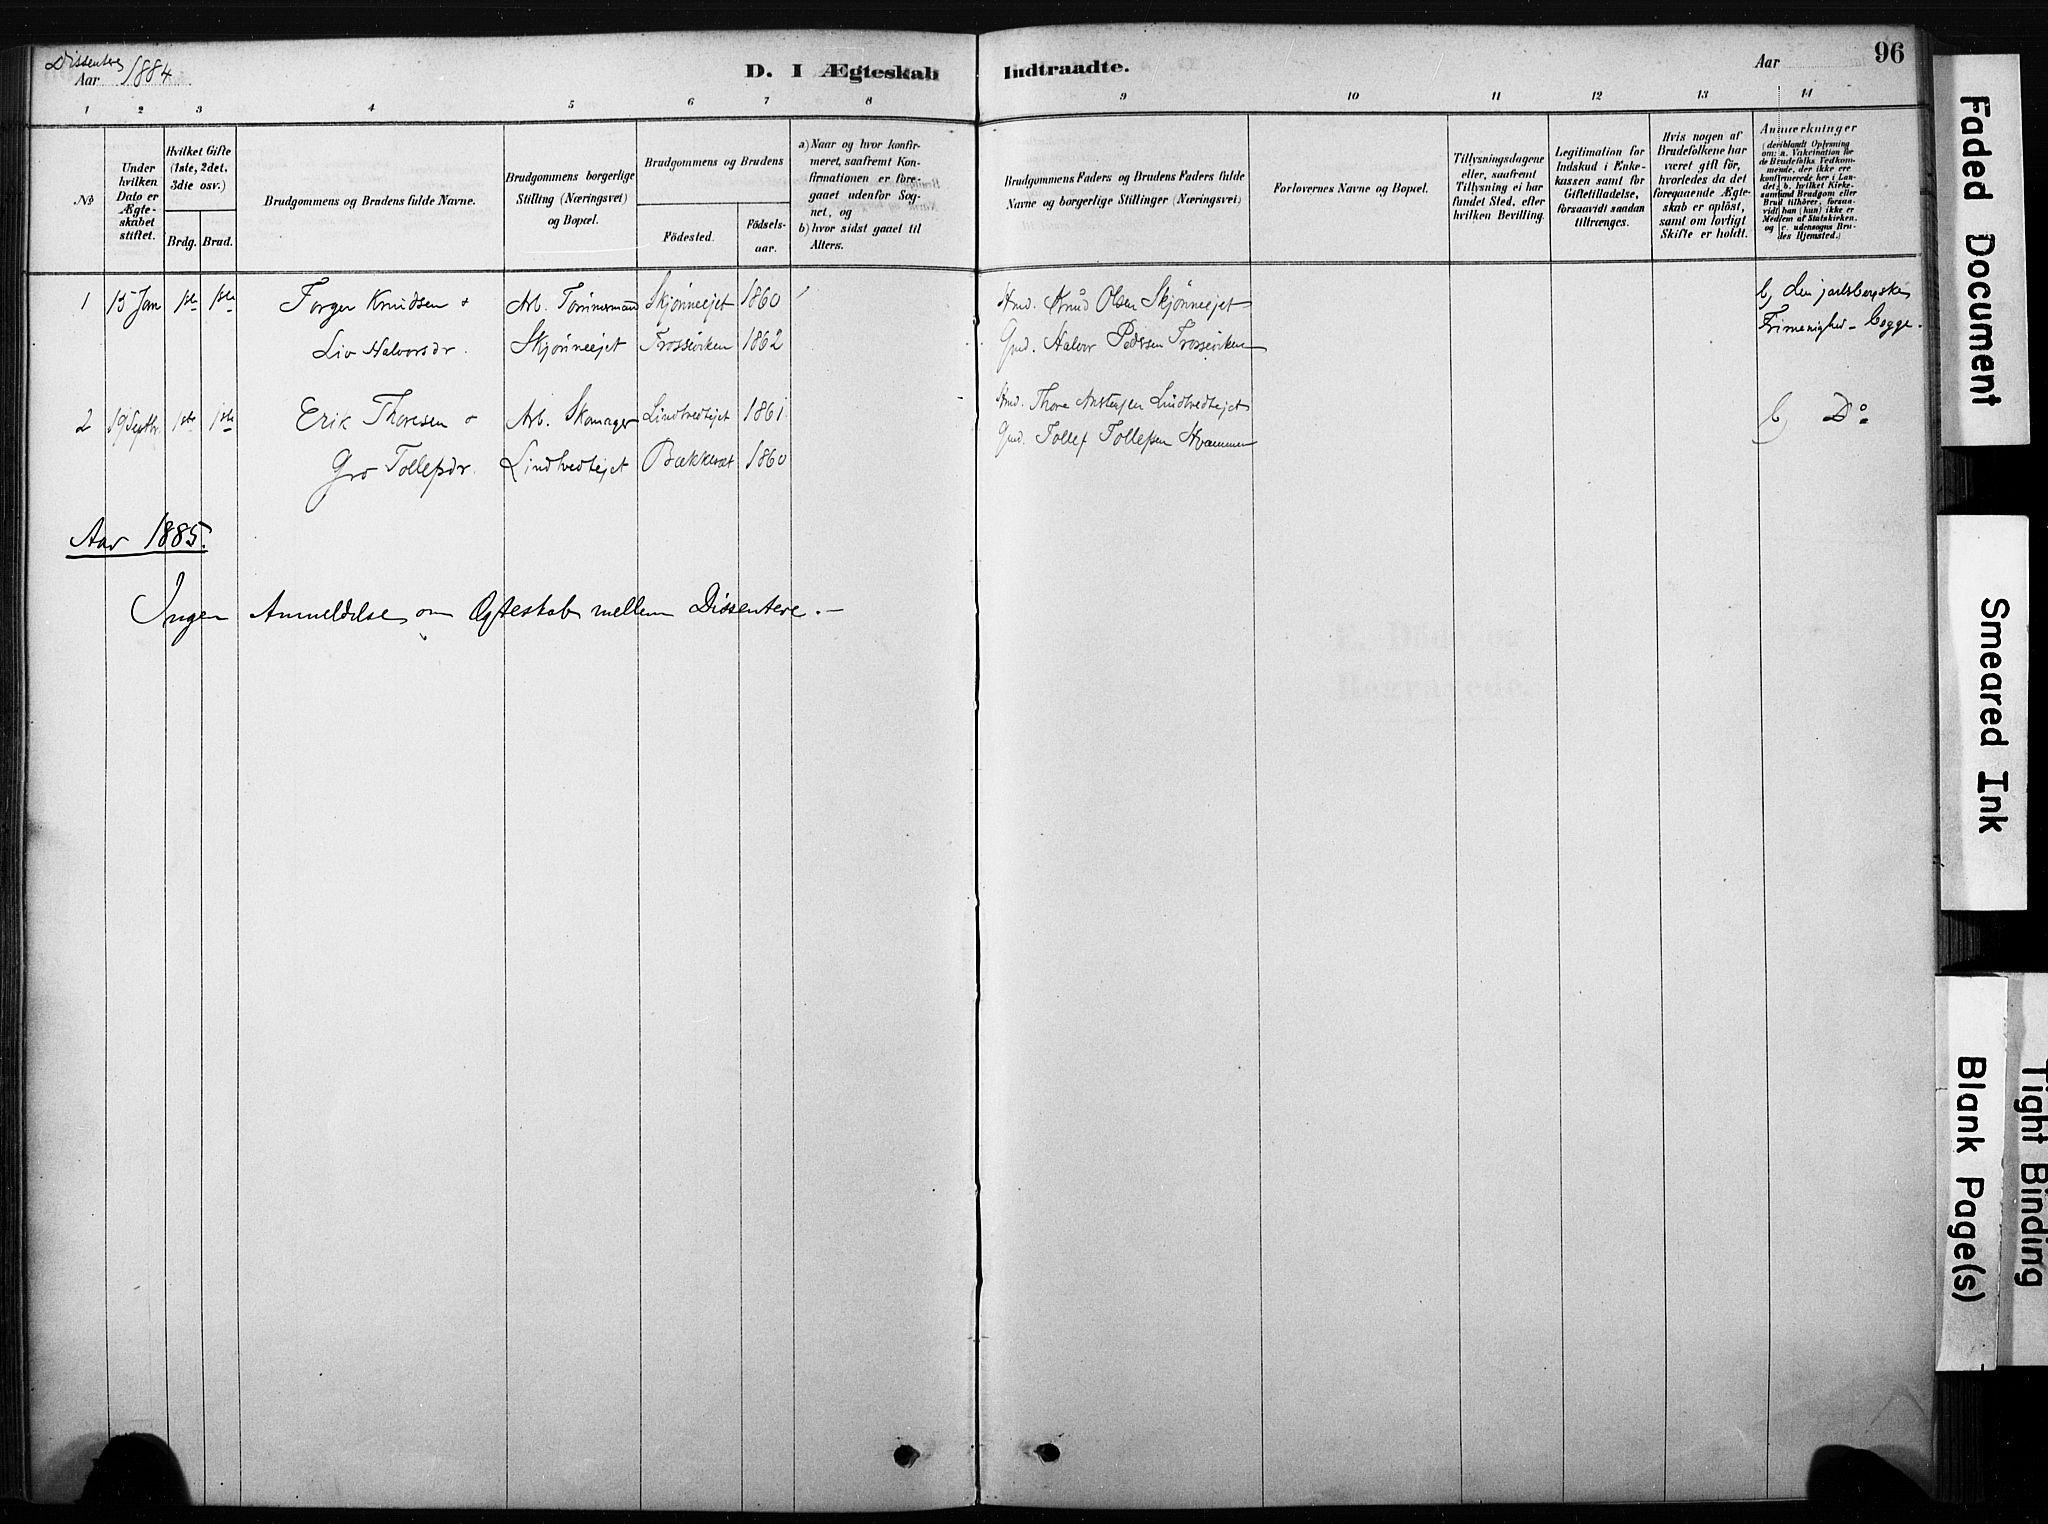 Dissentere
Aar 1884
D. I Ægteskab Indtraadte.
Aar
96
1 2 3 4 5 6 7 8 9 10 11 12 13 14
№
Under
hvilken
Dato er
Ægte-
skabet
stiftet.
Hvilket Gifte
(1ste, 2det,
3die osv.)
Brdg. Brud.
Brudgommens og Brudens fulde Navne.
Brudgommens borgerlige
Stilling (Næringsvei)
og Bopæl.
Brudgommens og Brudens
Födested.
Födsels-
aar.
a) Naar og hvor konfir-
meret, saafremt Kon-
firmationen er fore-
gaaet udenfor Sog-
net, og
b) hvor sidst gaaet til
Alters.
Brudgommens Faders og Brudens Faders fulde
Navne og borgerlige Stillinger (Næringsvei)
Forlovernes Navne og Bopæl.
Tillysningsdagene
eller, saafremt
Tillysning ei har
fundet Sted, efter
hvilken Bevilling.
Legitimation for
Indskud i Enke-
kassen samt for
Giftetilladelse,
forsaavidt saadan
tiltrænges.
Hvis nogen af
Brudefolkene har
været gift för,
hvorledes da det
foregaaende Ægte-
skab er oplöst,
samt om lovligt
Skifte er holdt.
Anmærkninger
(deriblandt Oplysning
om: a. Vakcination for
de Brudefolks Vedkom-
mende, der ikke ere
konfirmerede her i Lan-
det; b. hvilket Kirke-
samfund Brudgom eller
Brud tilhörer, forsaa-
vidt han (hun) ikke er
Medlem af Statskirken,
og c. udensogns Bru-
des Hjemsted.)
1 15 Jan 1ste 1ste Torger Knudsen & Arb. Tømmermand Skjønneejet 1860 Hmd. Knud Olsen Skjønneejet b) den jarlsbergske
Liv Halvorsdr. Skjønneejet Frossviken 1862 Gmd. Halvor Pedersen Frossviken Frimenighed -
2 19 Septbr. 1ste 1ste Erik Thoresen & Arb. Skomager Lindtvedtejet 1861 Hmd. Thore Anstensen Lindtvedtejet b) Do
Gro Tollefsdr. Lindtvedtejet 1860 Gmd. Tollef Tollefsen Hvammen
Aar 1885.
Ingen Anmeldelse om Ægteskab mellem Dissentere. –
E. Döde og
Begravede.
Faded Document
Smeared Ink
Tight Binding
Blank Page(s)